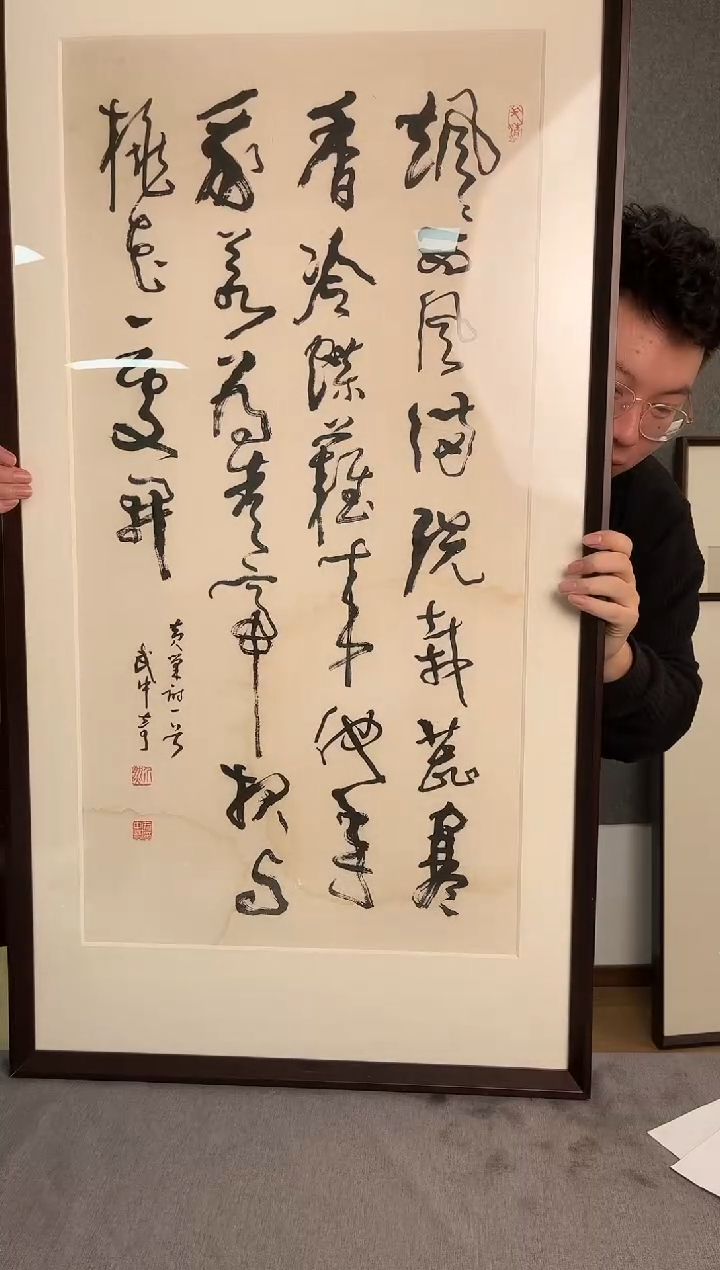 颯〻西風滿院栽蕊寒
香冷蝶難來他年
我若為青帝報与
桃花一處開
黃巢詩一首
武中奇